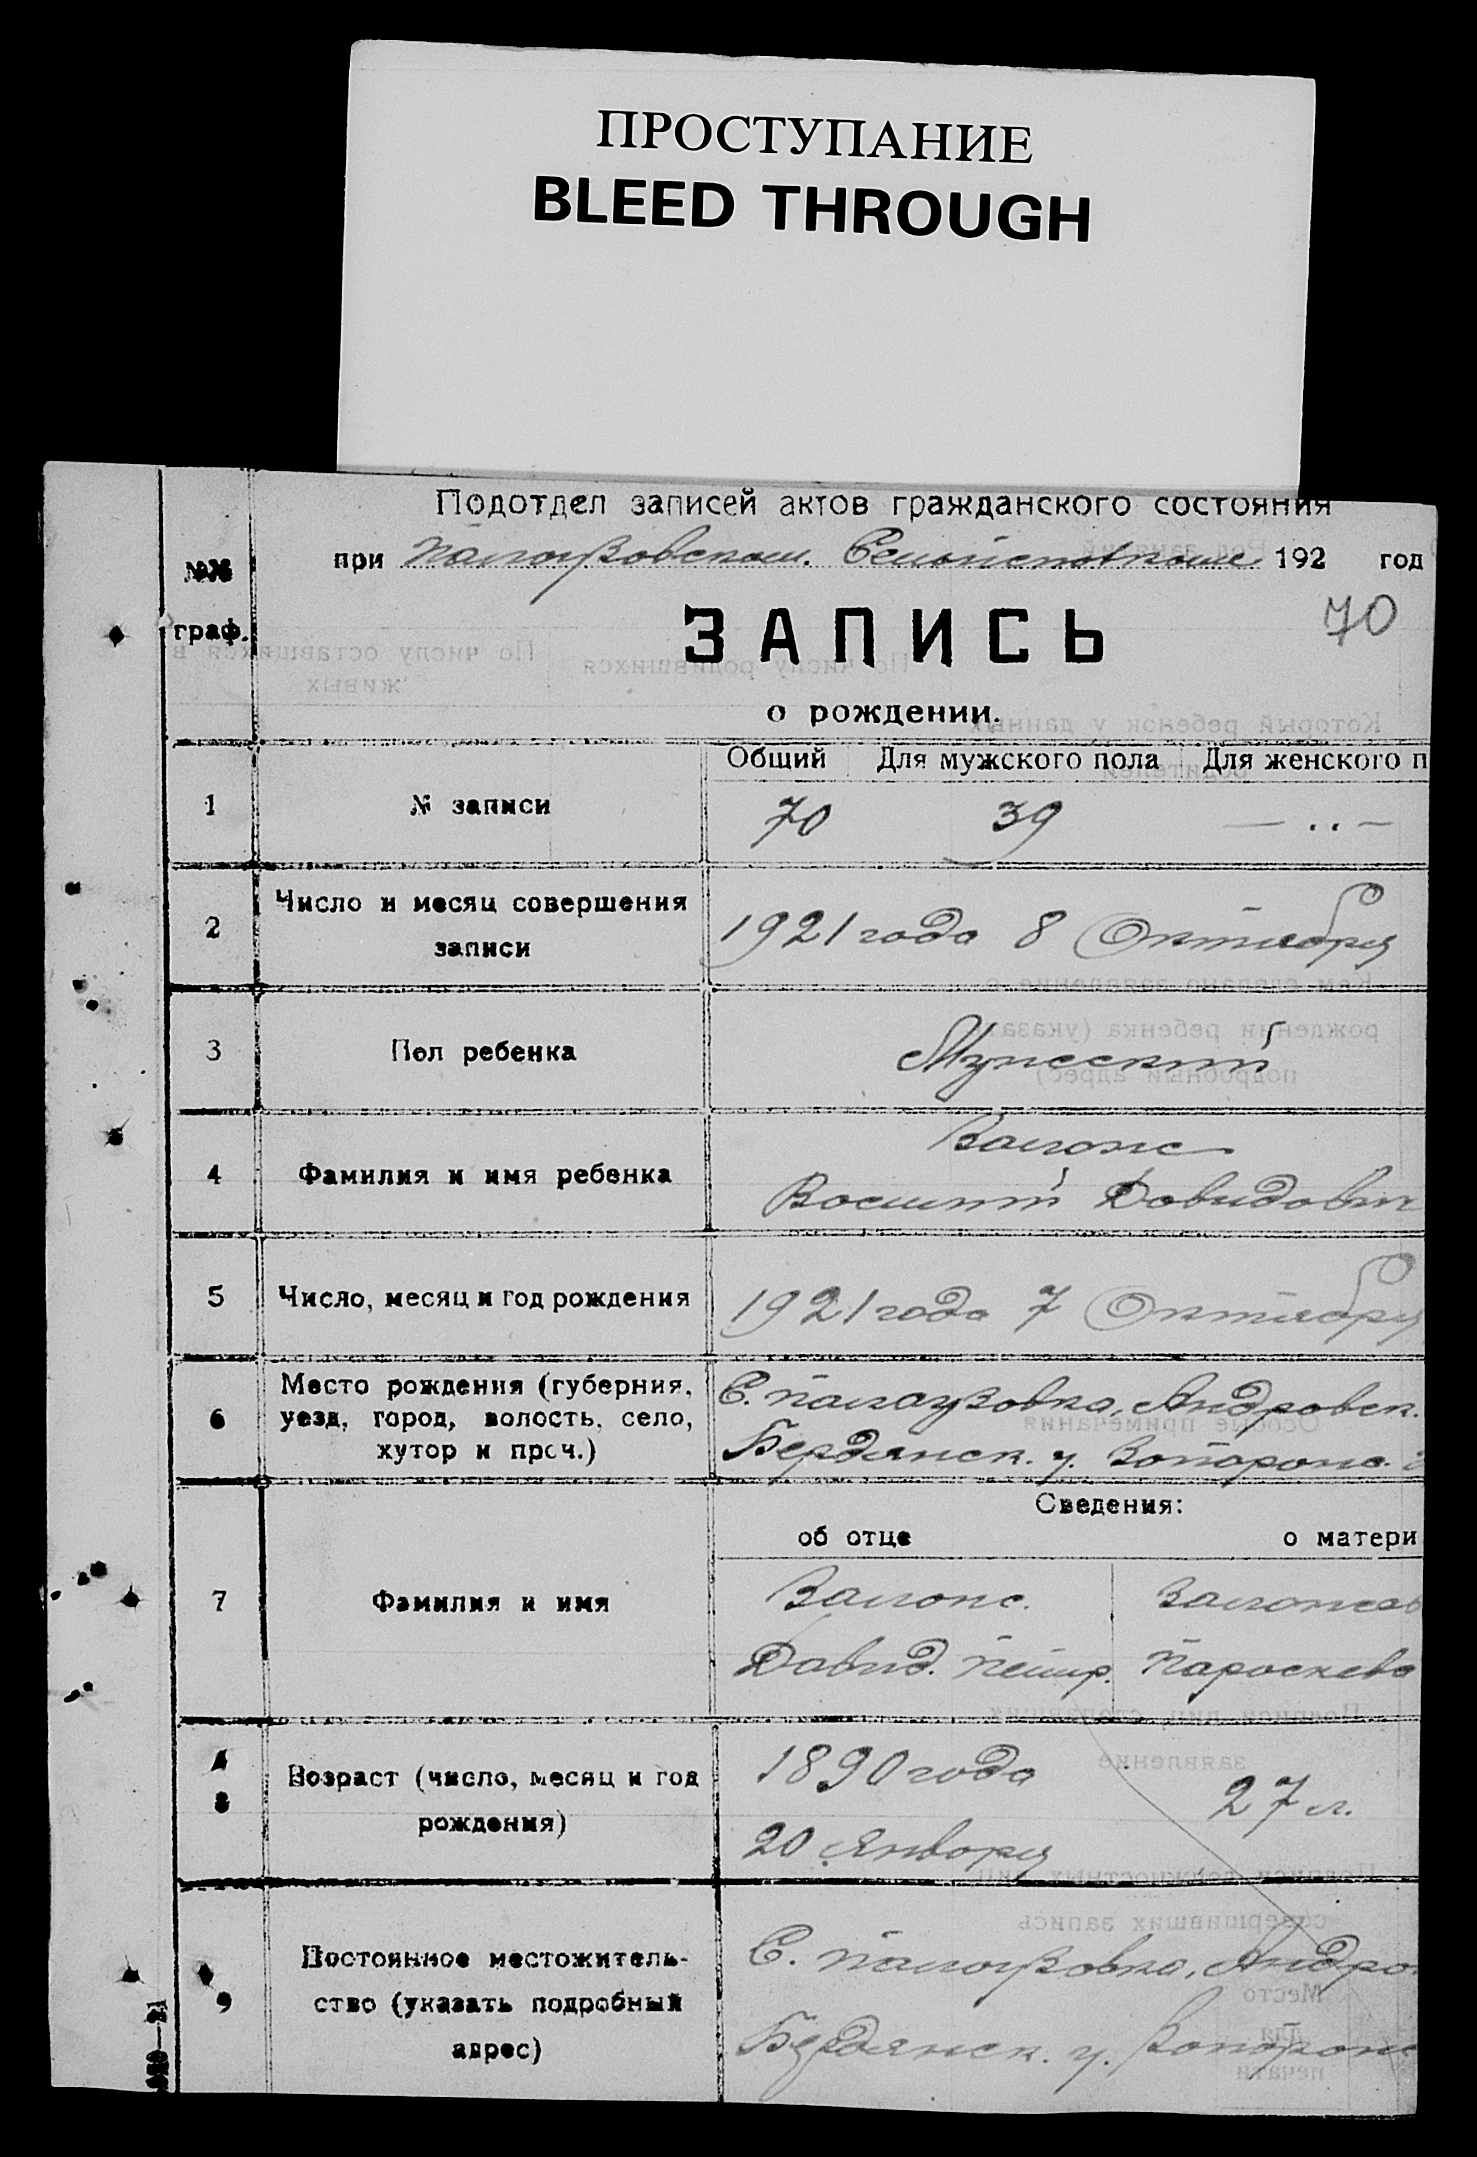 ПРОСТУПАНИЕ
BLEED THROUGH
Подотдел записей актов гражданского состояния
при 192 год
№№
граф.
70
ЗАПИСЬ
о рождении.
Общий Для мужского пола Для женского п
1 № записи 70 39 — .. —
2 Число и месяц совершения
записи
1921 года 8 Октября
3 Пол ребенка Мужеский
4 Фамилия и имя ребенка
Давидович
5 Число, месяц и год рождения 1921 года 7 Октября
6 Место рождения (губерния,
уезд, город, волость, село,
хутор и проч.)
С. Палаузовка, Андровск.
Бердянск. у. Запорож.
Сведения:
об отце о матери
7 Фамилия и имя
Давид. Петр. Параскева
8 Возраст (число, месяц и год
рождения)
1890 года
20 Января
27 л.
9 Постоянное местожитель-
ство (указать подробный
адрес)
С. Палаузовка, Андро
Бердянск. у. Запорож